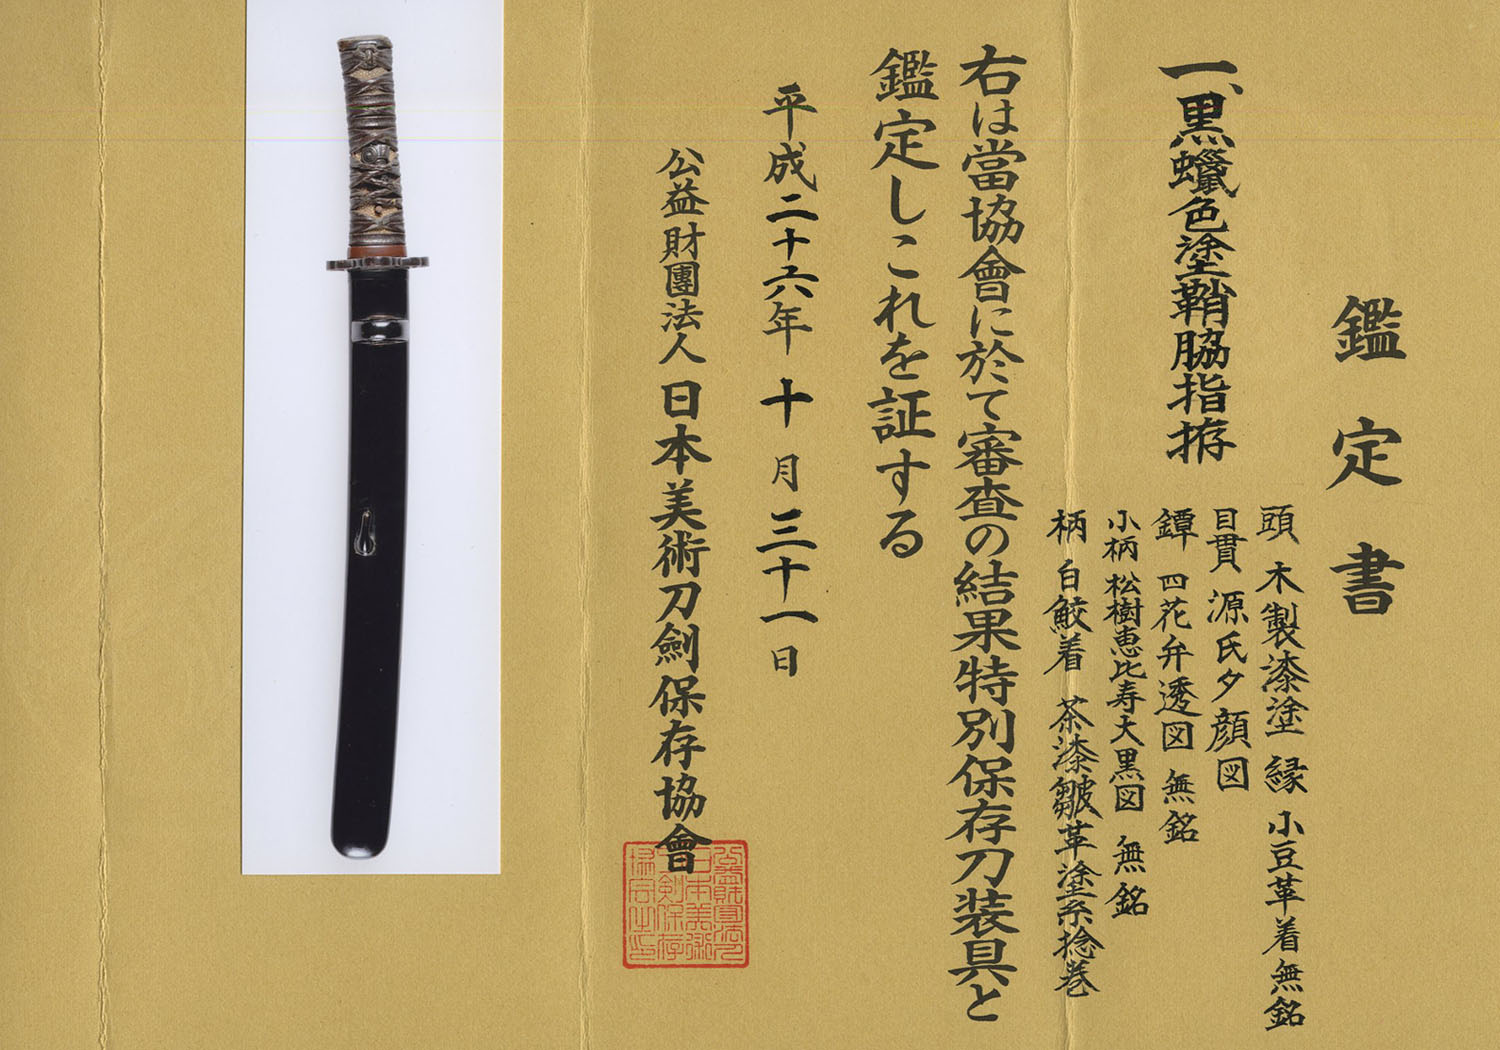 鑑定書
一、黒蠟色塗鞘脇指拵
頭 木製漆塗 縁 小豆革着無銘
目貫 源氏夕顔図
鐔 四花弁透図 無銘
小柄 松樹恵比寿大黒図 無銘
柄 白鮫着 茶漆皺革塗糸捻巻
右は當協會に於て審査の結果特別保存刀装具と
鑑定しこれを証する
平成二十六年 十月三十一日
公益財團法人 日本美術刀劍保存協會